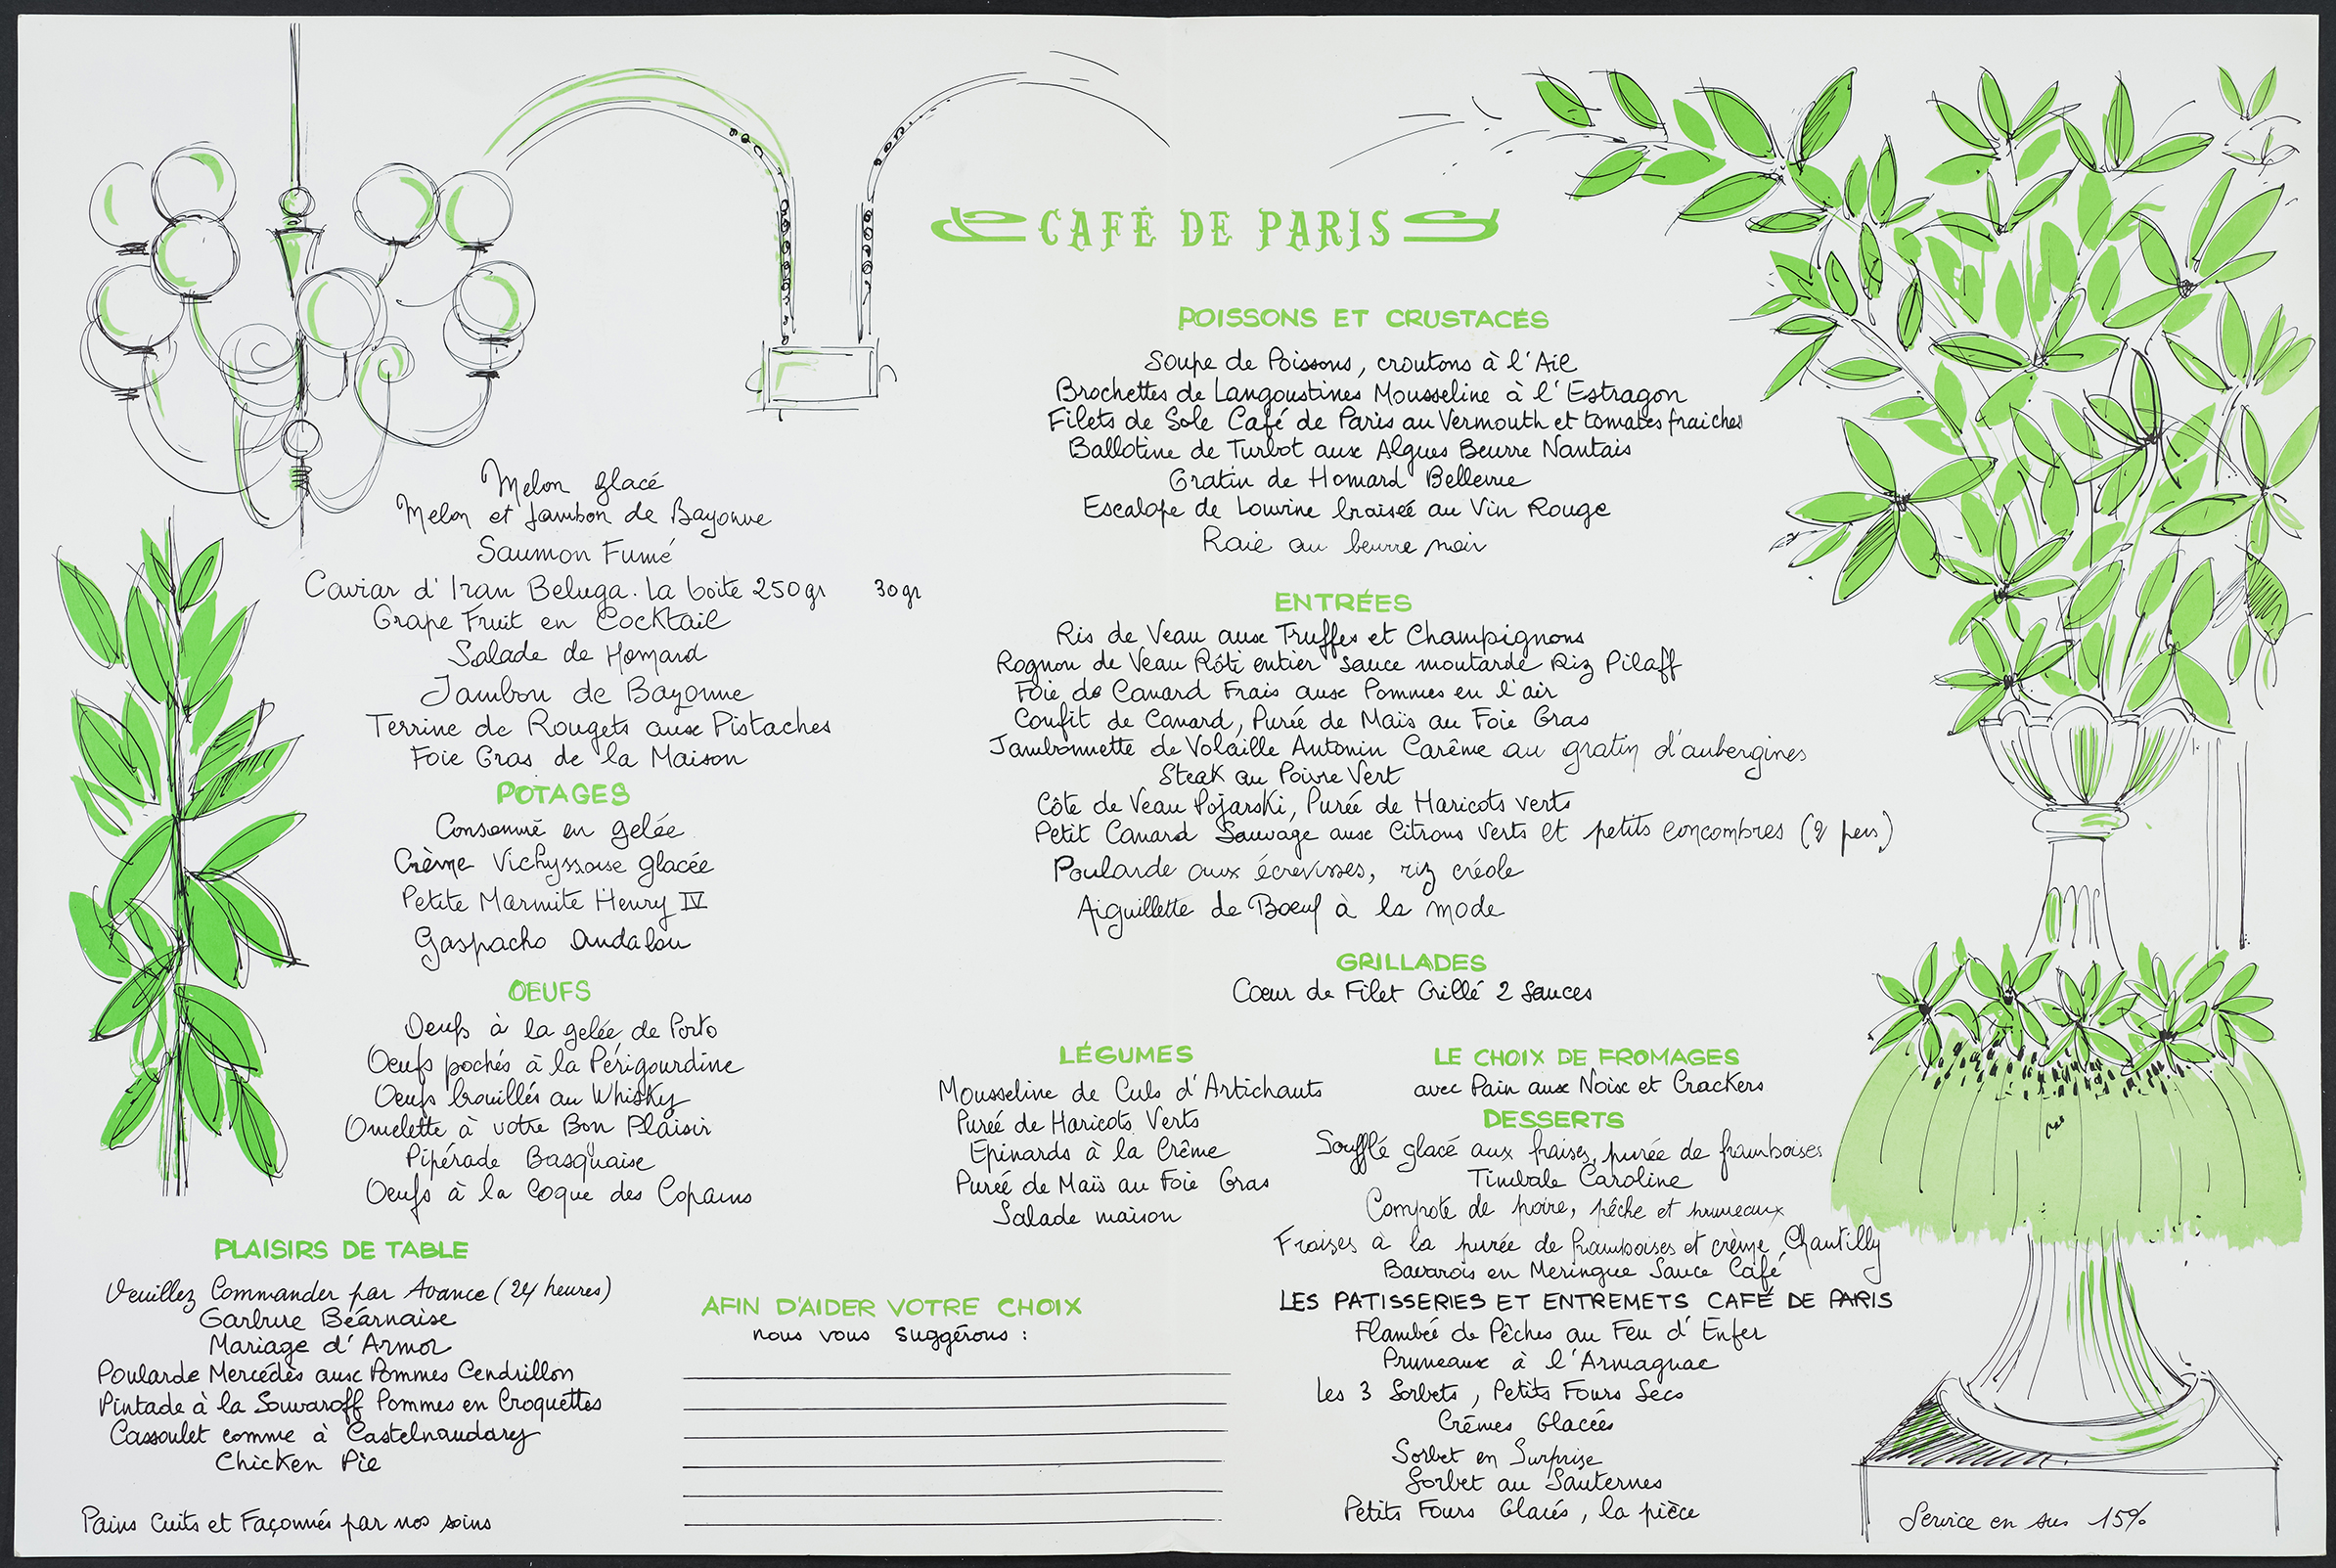 CAFÉ DE PARIS
Melon glacé
Melon et Jambon de Bayonne
Saumon Fumé
Caviar d'Iran Beluga. La boite 250gr 30gr
Grape Fruit en Cocktail
Salade de Homard
Jambon de Bayonne
Terrine de Rougets aux Pistaches
Foie Gras de la Maison
POTAGES
Consommé en gelée
Crème Vichyssoise glacée
Petite Marmite Henry IV
Gaspacho Andalou
OEUFS
Oeufs à la gelée de Porto
Oeufs pochés à la Périgourdine
Oeufs brouillés au Whisky
Omelette à votre Bon Plaisir
Pipérade Basquaise
Oeufs à la Coque des Copains
PLAISIRS DE TABLE
Veuillez Commander par Avance (24 heures)
Garbure Béarnaise
Mariage d'Armor
Poularde Mercédès aux Pommes Cendrillon
Pintade à la Souvaroff Pommes en Croquettes
Cassoulet comme à Castelnaudary
Chicken Pie
Pains Cuits et Façonnés par nos soins
AFIN D'AIDER VOTRE CHOIX
nous vous suggérons :
POISSONS ET CRUSTACÉS
Soupe de Poissons, croutons à l'Ail
Brochettes de Langoustines Mousseline à l'Estragon
Filets de Sole Café de Paris au Vermouth et tomates fraiches
Ballotine de Turbot aux Algues Beurre Nantais
Gratin de Homard Bellevue
Escalope de Louvine braiseé au Vin Rouge
Raie au beurre noir
ENTRÉES
Ris de Veau aux Truffes et Champignons
Rognon de Veau Rôti entier sauce moutarde Riz Pilaff
Foie de Canard Frais aux Pommes en l'air
Confit de Canard, Purée de Maïs au Foie Gras
Jambonnette de Volaille Antonin Carême au gratin d'aubergines
Steak au Poivre Vert
Côte de Veau Pojarski, Purée de Haricots verts
Petit Canard Sauvage aux Citrons Verts et petits concombres (2 pers)
Poularde aux écrevisses, riz créole
Aiguillette de Boeuf à la mode
GRILLADES
Coeur de Filet Grillé 2 Sauces
LÉGUMES
Mousseline de Culs d'Artichauts
Pureé de Haricots Verts
Epinards à la Crême
Pureé de Maïs au Foie Gras
Salade maison
LE CHOIX DE FROMAGES
avec Pain aux Noix et Crackers
DESSERTS
Soufflé glacé aux fraises, purée de framboises
Timbale Caroline
Compote de poire, pêche et pruneaux
Fraises à la purée de framboises et crème Chantilly
Bavarois en Meringue Sauce Café
LES PATISSERIES ET ENTREMETS CAFÉ DE PARIS
Flambeé de Pêches au Feu d'Enfer
Pruneaux à l'Armagnac
Les 3 Sorbets, Petits Fours Secs
Crêmes Glacées
Sorbet en Surprise
Sorbet au Sauternes
Petits Fours Glacés, la pièce
Service en sus 15%